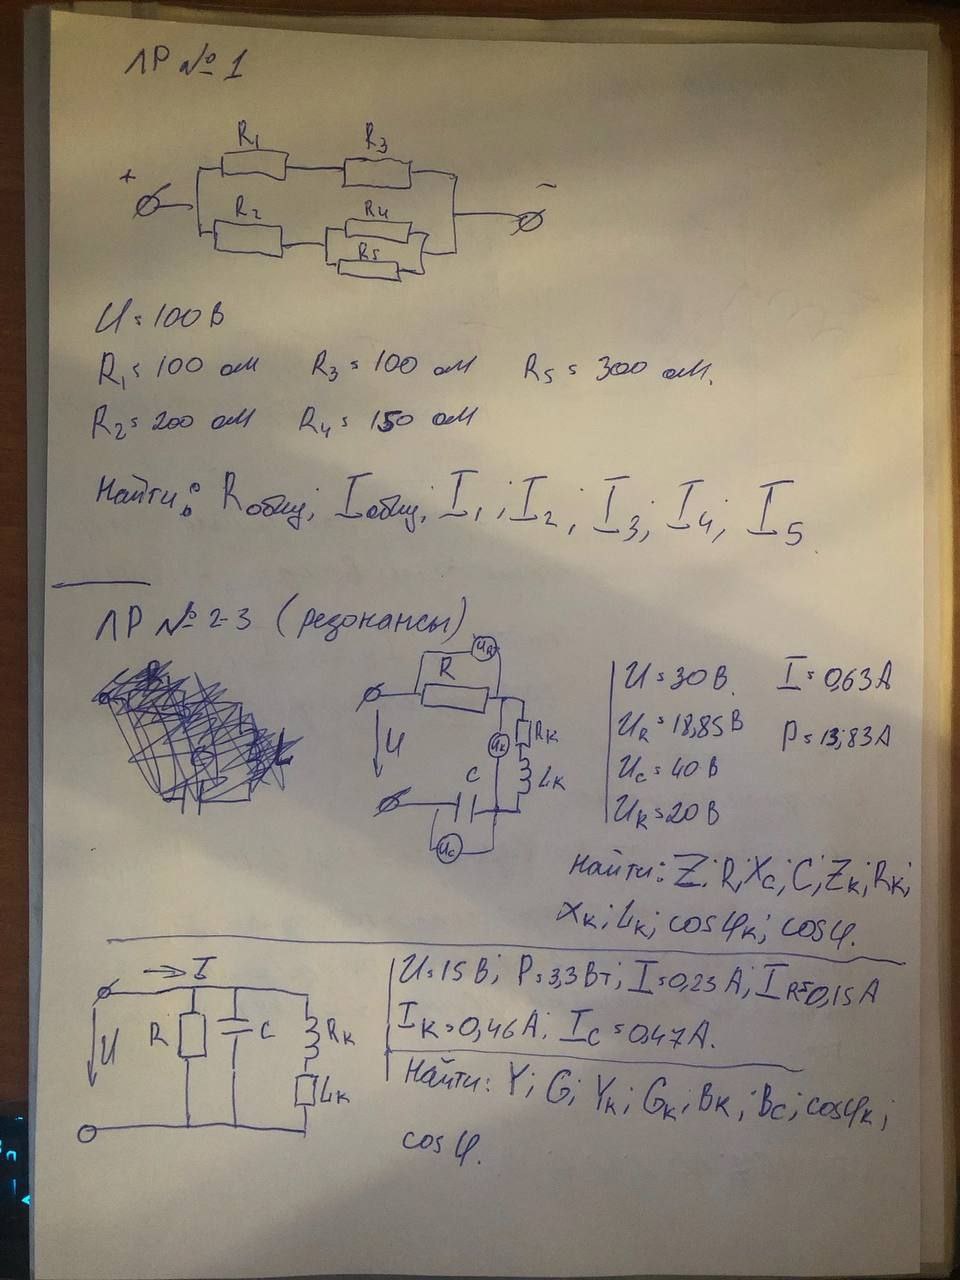 ЛР № 1
R1 R3
+ −
R2 R4
R5
U = 100 В
R1 = 100 ом R3 = 100 ом R5 = 300 ом.
R2 = 200 ом R4 = 150 ом
Найти: Rобщ; Iобщ; I1; I2; I3; I4; I5.
ЛР № 2-3 (резонансы)
UR
R
U
Uк Rк
C Lк
Uc
U = 30 В. I = 0,63 А
UR = 18,85 В P = 13,83 А
Uc = 40 В
Uк = 20 В
Найти: Z; R; Xc; C; Zк; Rк;
Xк; Lк; cosφк; cosφ.
I
U R C Rк
Lк
U = 15 В; P = 3,3 Вт; I = 0,23 А; IR = 0,15 А
Iк = 0,46 А; Ic = 0,47 А.
Найти: Y; G; Yк; Gк; Bк; Bc; cosφк;
cos φ.